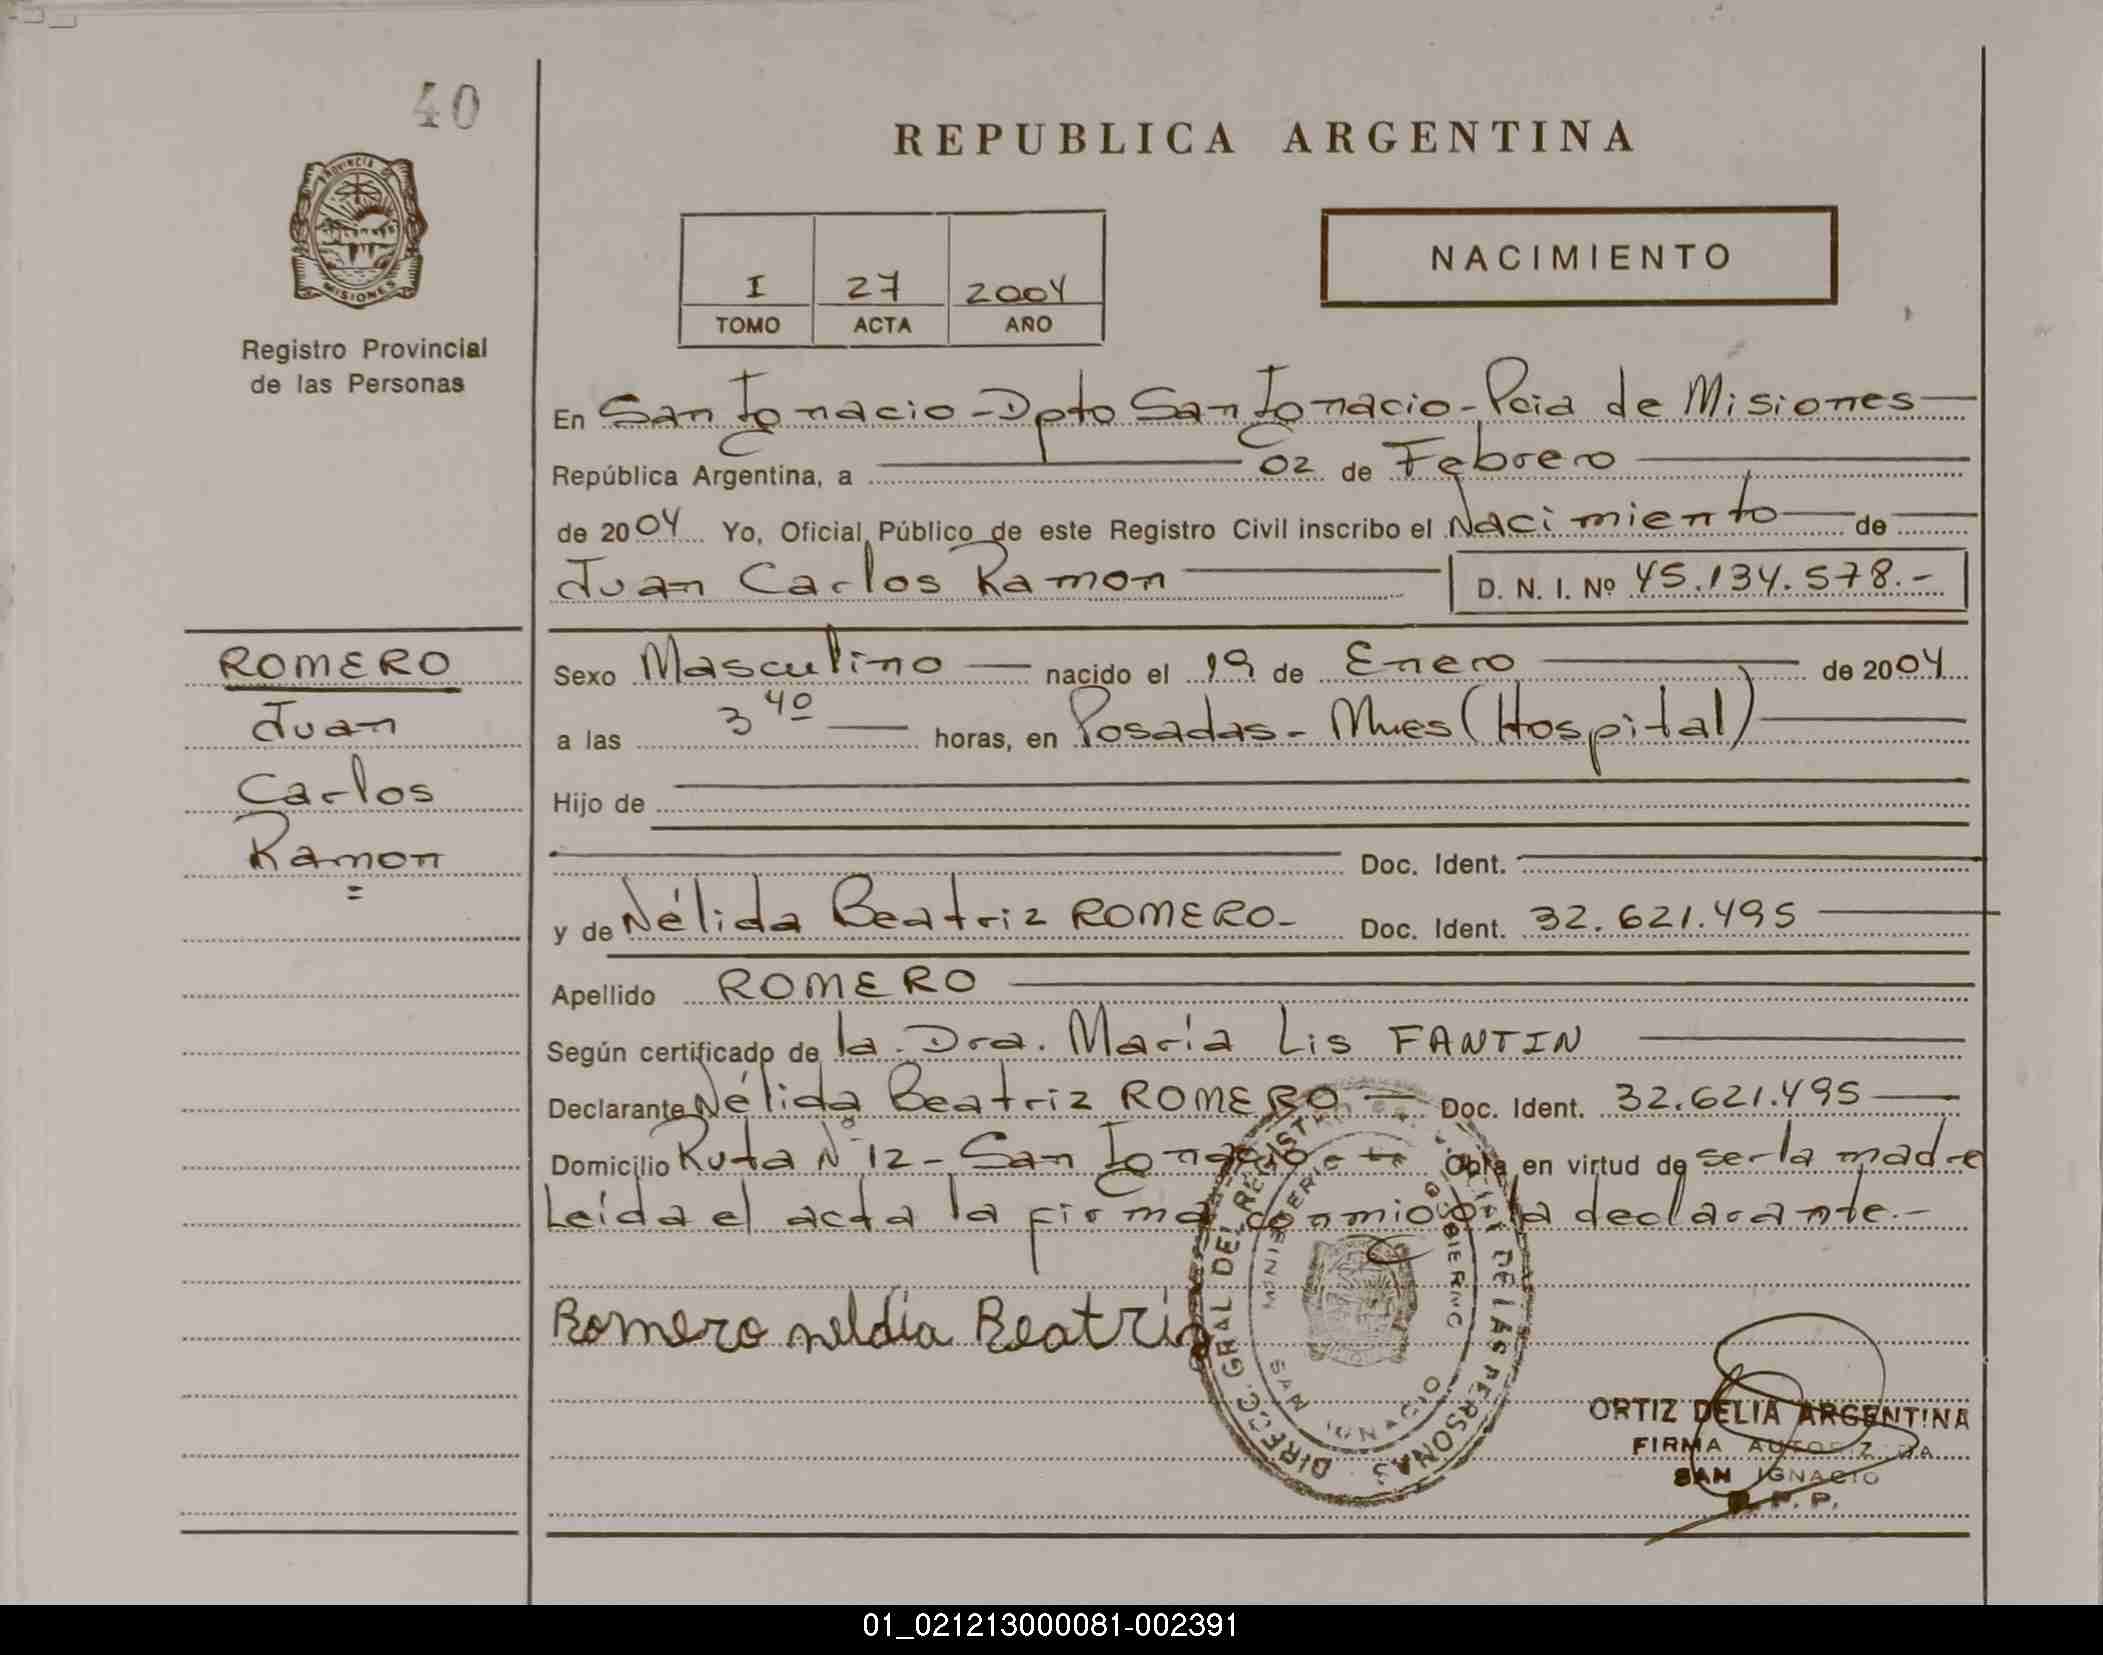 40
PROVINCIA DE
MISIONES
Registro Provincial
de las Personas
REPUBLICA ARGENTINA
I 27 2004
TOMO ACTA AÑO
NACIMIENTO
En San Ignacio - Dpto San Ignacio - Pcia de Misiones
República Argentina, a 02 de Febrero
de 2004 Yo, Oficial Público de este Registro Civil inscribo el Nacimiento de
Juan Carlos Ramon D. N. I. Nº 45.134.578.-
ROMERO
Juan
Carlos
Ramon
Sexo Masculino nacido el 19 de Enero de 2004
a las 3 40 horas, en Posadas - Mnes (Hospital)
Hijo de
Doc. Ident.
y de Nélida Beatriz ROMERO- Doc. Ident. 32.621.495
Apellido ROMERO
Según certificado de la Dra. María Lis FANTIN
Declarante Nélida Beatriz ROMERO - Doc. Ident. 32.621.495
Domicilio Ruta Nº 12 - San Ignacio Obra en virtud de ser la madre
Leída el acta la firma conmigo la declarante.-
Romero neldia Beatriz
DIRECC. GRAL DEL REGISTRO DE LAS PERSONAS
MINISTERIO DE GOBIERNO
SAN IGNACIO
ORTIZ DELIA ARGENTINA
FIRMA AUTORIZADA
SAN IGNACIO
R. P. P.
01_021213000081-002391